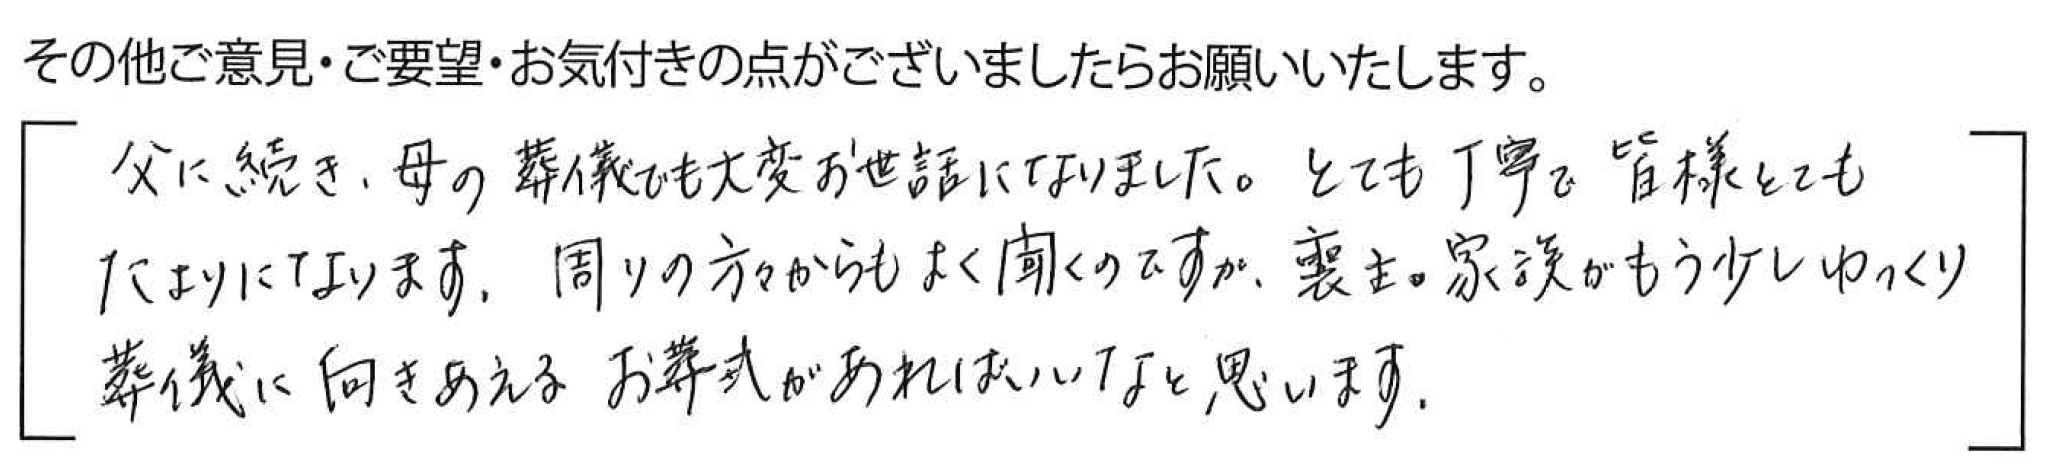 その他ご意見・ご要望・お気付きの点がございましたらお願いいたします。
父に続き、母の葬儀でも大変お世話になりました。とても丁寧で皆様とても
たよりになります。周りの方々からもよく聞くのですが、喪主。家族がもう少しゆっくり
葬儀に向きあえるお葬式があればいいなと思います。